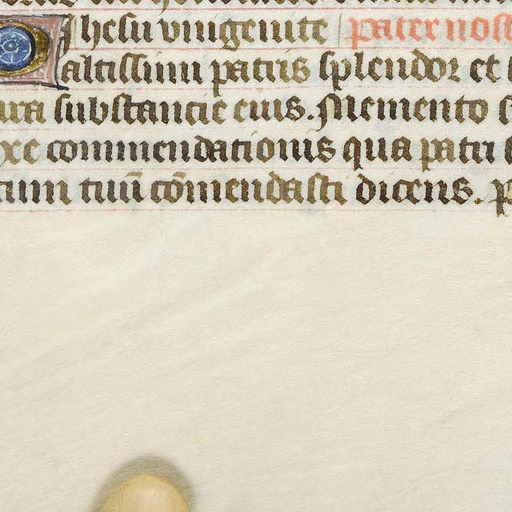 O Ihesu vnigenite pater nost
altissimi patris splendor et
ura substancie eius. Memento
xe commendationis qua patri
tum tuū cōmendasti dicens. p